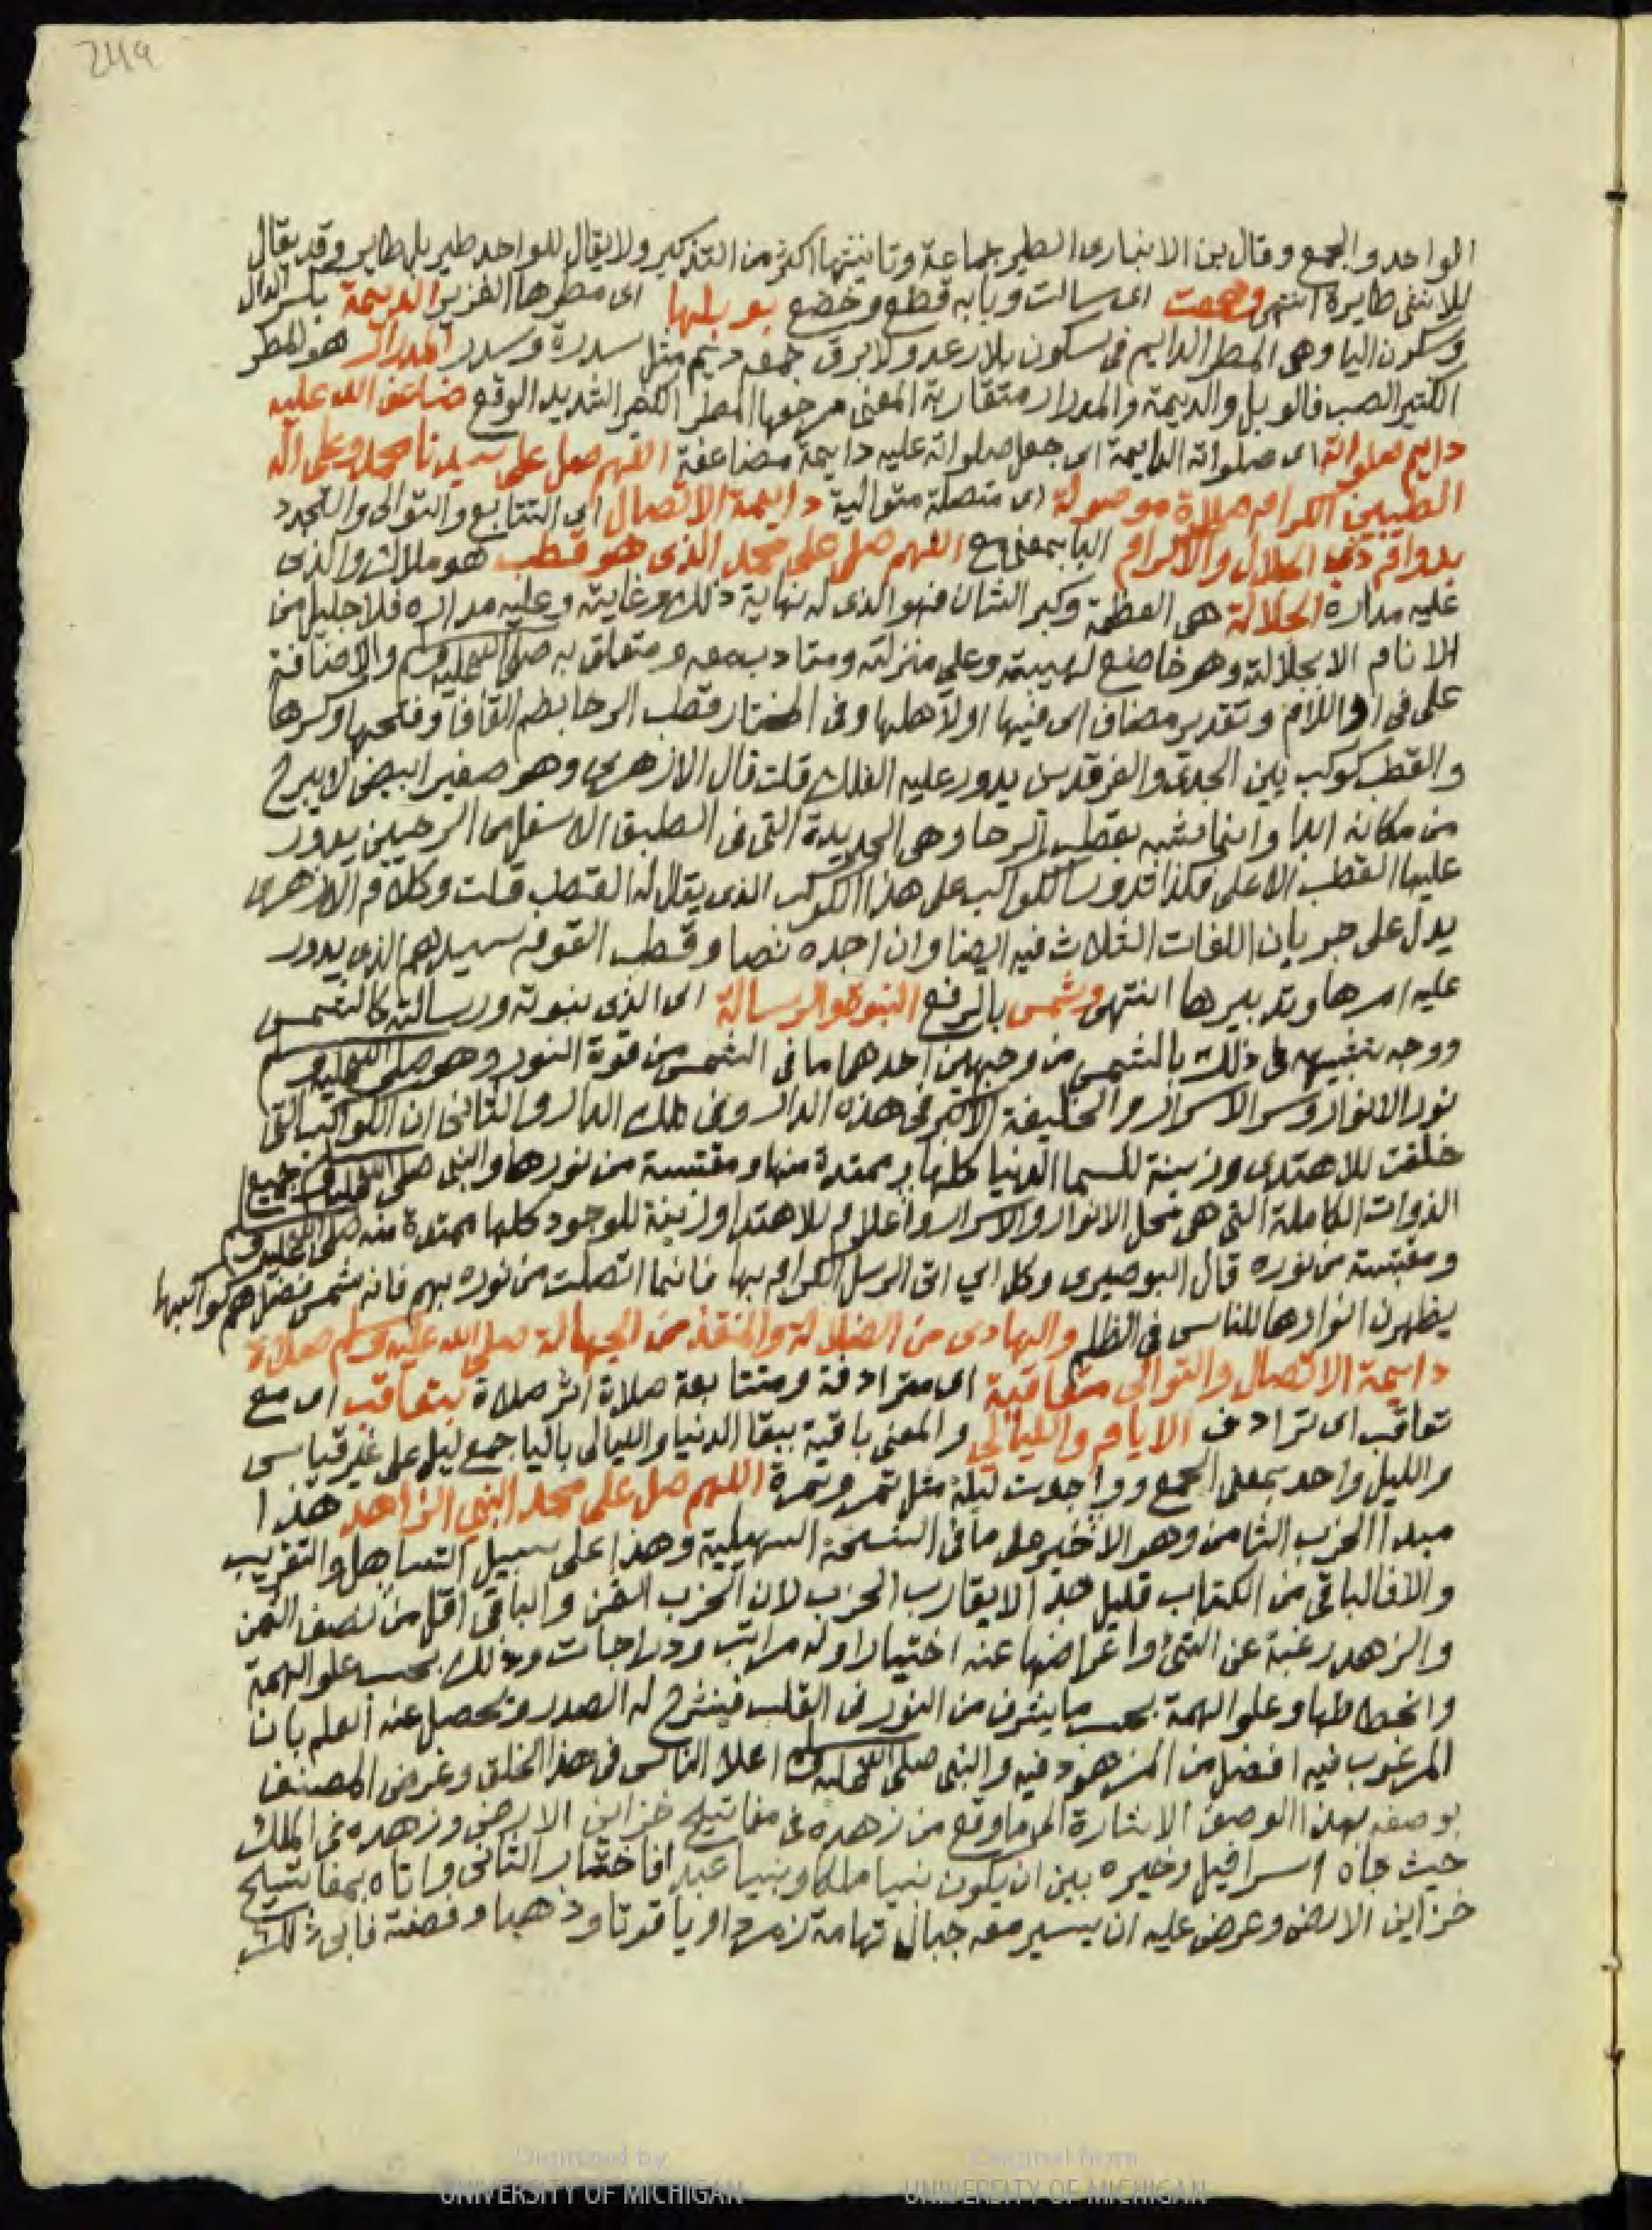 249
الواحد والجمع وقال بن الانبارى الطير جماعة وتانيثها اكثر من التذكير ولا يقال للواحد طير بل طاير وقد يقال
للانثى طايرة انتهى وهمعت اى سالت وبابه قطع وخضع بوبلها اى مطرها الغزير الديمة بكسر الدال
وسكون اليا وهى المطر الدايم فى سكون بلا رعد ولا برق جمعه ديم مثل سدرة وسدر المدرار هو المطر
الكثير الصب فالوبل والديمة والمدرار متقاربة المعنى مرجعها المطر الكثير الشديد الوقع ضاعف الله عليه
دايم صلواته اى صلواته الدايمة اى جعل صلواته عليه دايمة مضاعفة اللهم صل على سيدنا محمد وعلى اله
الطيبين الكرام صلاة موصولة اى متصلة متوالية دايمة الاتصال اى التتابع والتوالى والتجدد
بدوام ذى الجلال والاكرام البا بمعنى مع اللهم صل على محمد الذى هو قطب هو ملاك والذى
عليه مداره الجلالة هى العظمة وكبر الشان فهو الذى له نهاية ذلك وغايته وعليه مداره فلا جليل من
الانام الا بجلالته وهو خاضع لهيبته وعلى منزلته ومتادب معه ومتعلق به صلى الله عليه وسلم والاضافة
على فى او اللام وتقدير مضاف اى فيها او لاهلها وفى المختار قطب الرحا بضم القاف وفتحها وكسرها
والقطب كوكب بين الجدى والفرقدين يدور عليه الفلك قلت قال الازهرى وهو صغير ابيض لا يبرح
من مكانه ابدا وانما شبه بقطب الرحا وهى الحديدة التى فى الطبق الاسفل من الرحيين يدور
عليها القطب الاعلى فكذا تدور الكواكب على هذا الكوكب الذى يقال له القطب قلت وكلام الازهرى
يدل على جريان اللغات الثلاث فيه ايضا وان اجده نصا وقطب القوم سيدهم الذى يدور
عليه امرها وتدبيرها انتهى وشمس بالرفع النبوة والرسالة اى الذى نبوته ورسالته كالشمس
ووجه تشبيهه فى ذلك بالشمس من وجهين احدهما ما فى الشمس من قوة النور وهو صلى الله عليه وسلم
نور الانوار وسر الاسرار والخليفة الاكبر فى هذه الدار وفى تلك الدار والثانى ان الكواكب التى
خلقت للاهتدى وزينة للسما الدنيا كلها ممتدة منها ومقتبسة من نورها والنبى صلى الله عليه وسلم جميع
الذوات الكاملة التى هى محل الانوار والاسرار واعلام للاهتدا وزينة للوجود كلها ممتدة منه صلى الله عليه وسلم
ومقتبسة من نوره قال البوصيرى وكل اي اتى الرسل الكرام بها فانما اتصلت من نوره بهم فانه شمس فضل هم كواكبها
يظهرن انوارها للناس فى الظلم والهادى من الضلالة والمنقذ من الجهالة صلى الله عليه وسلم صلاة
دايمة الاتصال والتوالى متعاقبة اى مترادفة ومتتابعة صلاة اثر صلاة بتعاقب اى مع
تعاقب اى ترادف الايام والليالى والمعنى باقية ببقا الدنيا والليالى باليا جمع ليل على غير قياس
والليل واحد بمعنى الجمع وواحدت ليلة مثل تمر وتمرة اللهم صل على محمد النبى الزاهد هذا
مبدا الحزب الثامن وهو الاخير على ما فى النسخة السهيلية وهذا على سبيل التساهل والتقريب
والا فالباقى من الكتاب قليل جدا لا يقارب الحزب لان الحزب الثمن والباقى اقل من نصف الثمن
والزهد رغبة عن الشئ واعراضها عنه اختيارا وله مراتب ودراجات وذلك بحسب علو الهمة
وانحطاطها وعلو الهمة بحسب ما يشرق من النور فى القلب فينشرح له الصدر وتحصل عنه العلم بان
المرغوب فيه افضل من المزهود فيه والنبى صلى الله عليه وسلم اعلا الناس فى هذا الخلق وغرض المصنف
بوصفه بهذا الوصف الاشارة الى ما وقع من زهده فى مفاتيح خزاين الارض وزهده فى الملك
حيث جاه اسرافيل وخيره بين ان يكون نبيا ملكا ونبيا عبدا فاختار الثانى واتاه بمفاتيح
خزاين الارض وعرض عليه ان يسير معه جبال تهامة زمردا وياقوتا وذهبا وفضة فابى ذلك
Digitized by UNIVERSITY OF MICHIGAN
Original from UNIVERSITY OF MICHIGAN